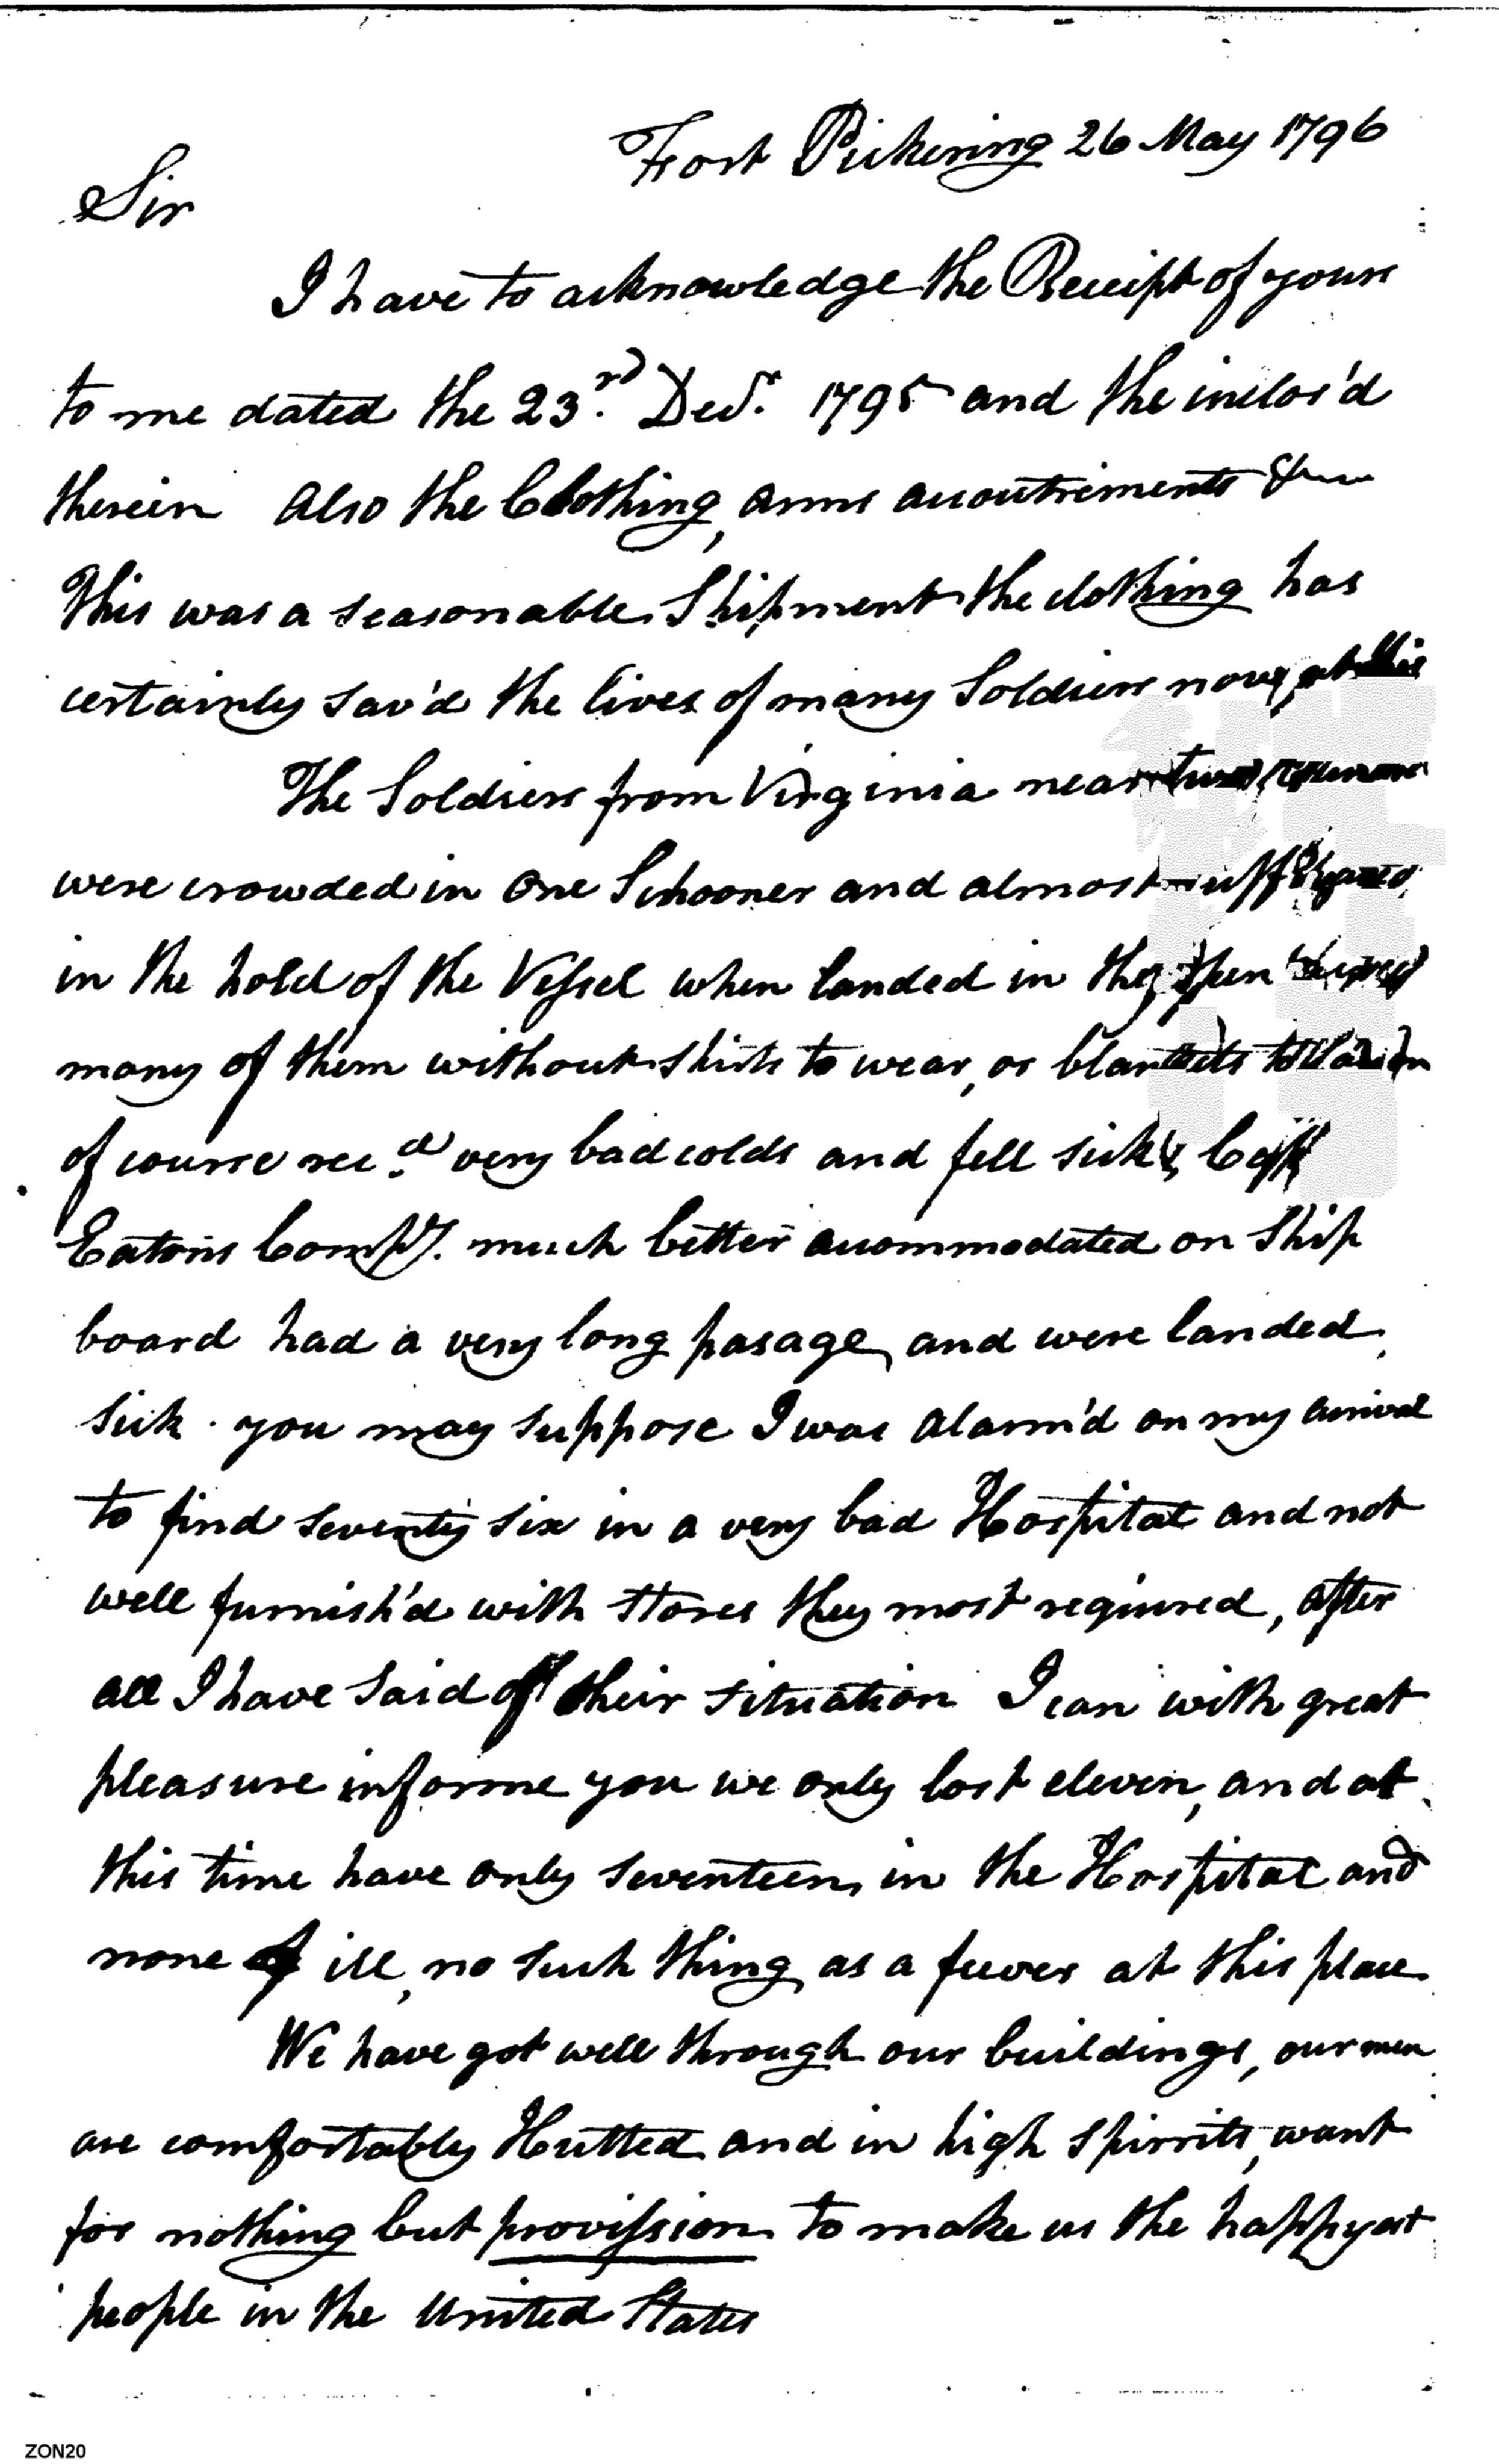 Fort Pickering 26 May 1796
Sir
I have to acknowledge the Receipt of yours
to me dated the 23.rd Decr. 1795 and the inclos'd
therein Also the Clothing, arms acoutriments &c
This was a seasonable Shipment the clothing has
certainly sav'd the lives of many Soldiers now at this
The Soldiers from Virginia near two
were crowded in one Schooner and almost suffocated
in the hold of the Vessel when landed in the
many of them without shirts to wear, or blankets to
of course rec.d very bad colds and fell sick, Capt
Eatons Compy. much better accommodated on Ship
board had a very long pasage, and were landed
sick. you may suppose I was alarm'd on my arrival
to find seventy six in a very bad Hospital and not
well furnish'd with stores they most required, after
all I have said of their situation I can with great
pleasure informe you we only lost eleven, and at
this time have only seventeen in the Hospital and
none of ill, no such thing as a feever at this place
We have got well through our buildings, our men
are comfortably Hutted and in high spirrits, want
for nothing but provission to make us the happyest
people in the United States
ZON20